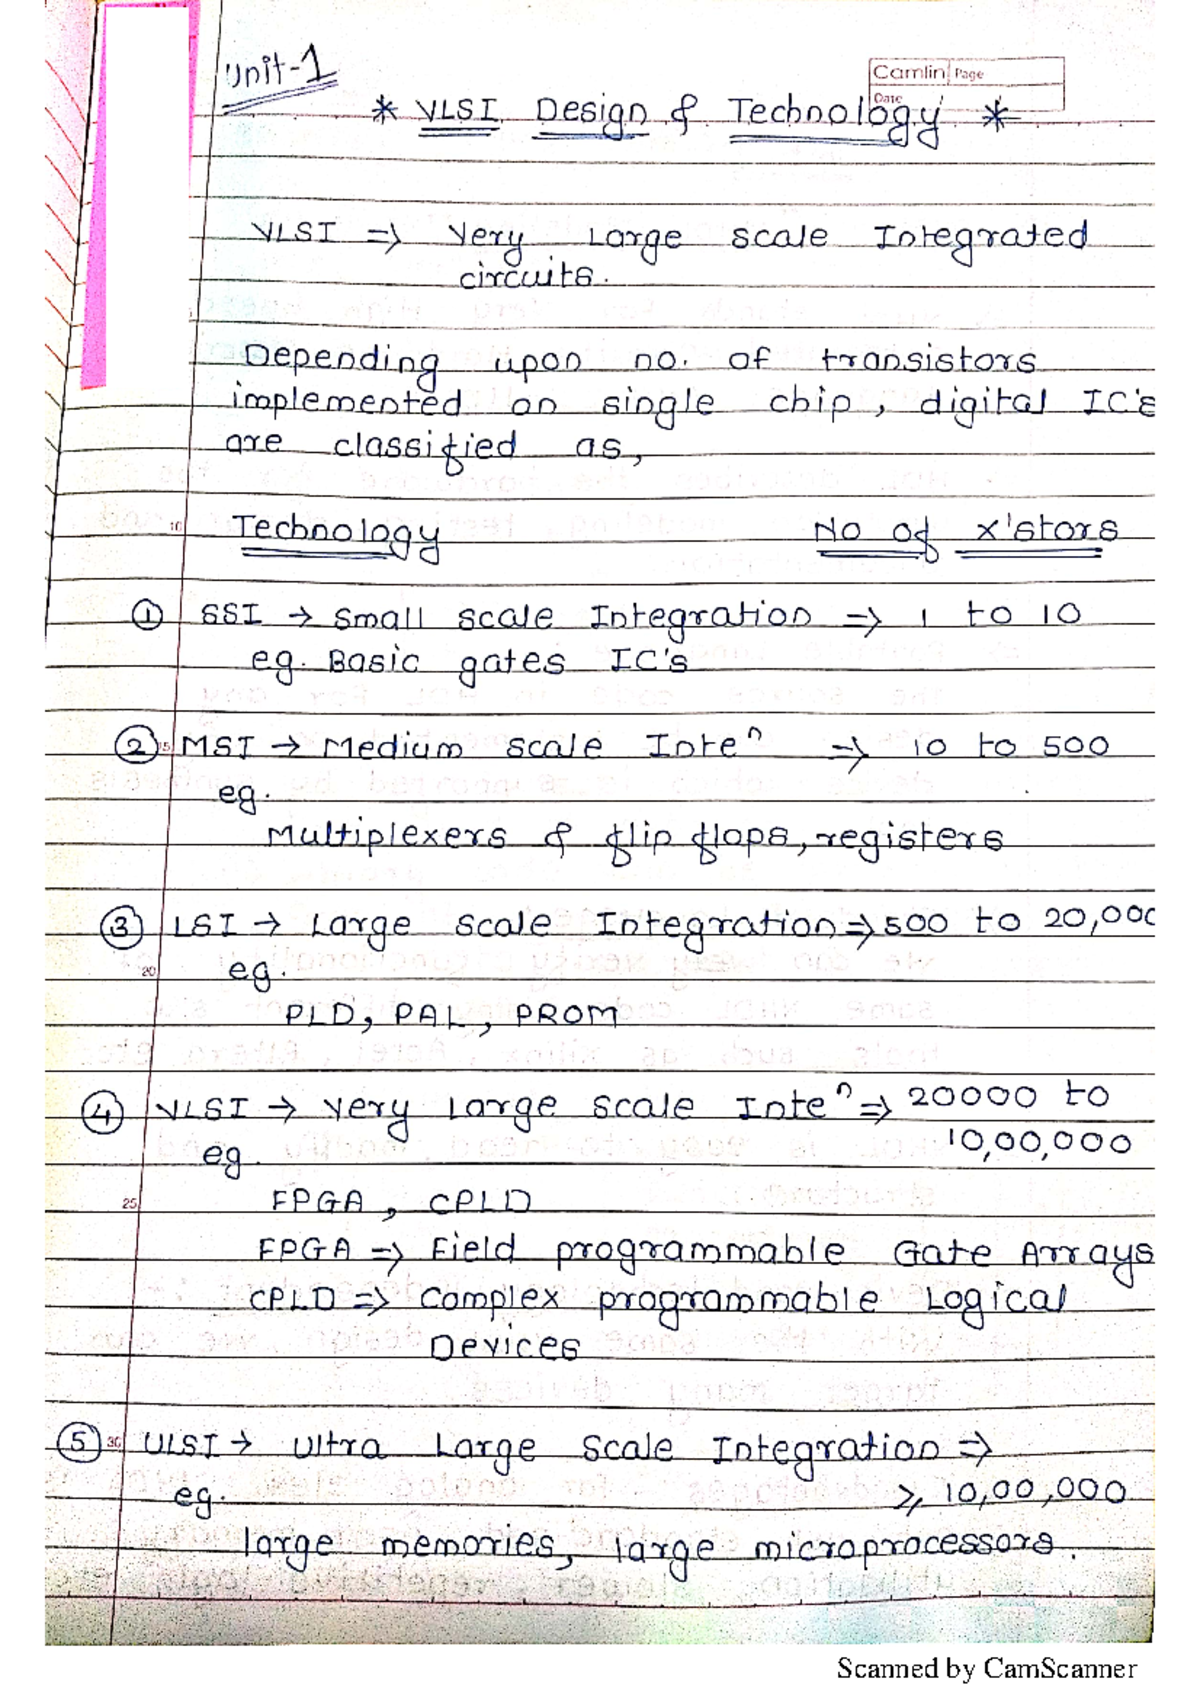 Unit-1
Camlin Page
Date
* VLSI Design & Technology *
VLSI => Very Large scale Integrated
circuits.
Depending upon no. of transistors
implemented on single chip, digital IC's
are classified as,
10
Technology No of x'stors
① SSI → Small scale Integration => 1 to 10
eg. Basic gates IC's
② MSI → Medium scale Inteⁿ => 10 to 500
eg.
Multiplexers & flip flops, registers
③ LSI → Large scale Integration => 500 to 20,000
20 eg.
PLD, PAL, PROM
④ VLSI → Very Large scale Inteⁿ => 20000 to
10,00,000
eg.
25 FPGA, CPLD
FPGA => Field programmable Gate Arrays
CPLD => Complex programmable Logical
Devices
⑤ 30 ULSI → Ultra Large Scale Integration =>
eg. ⩾ 10,00,000
large memories, large microprocessors.
Scanned by CamScanner